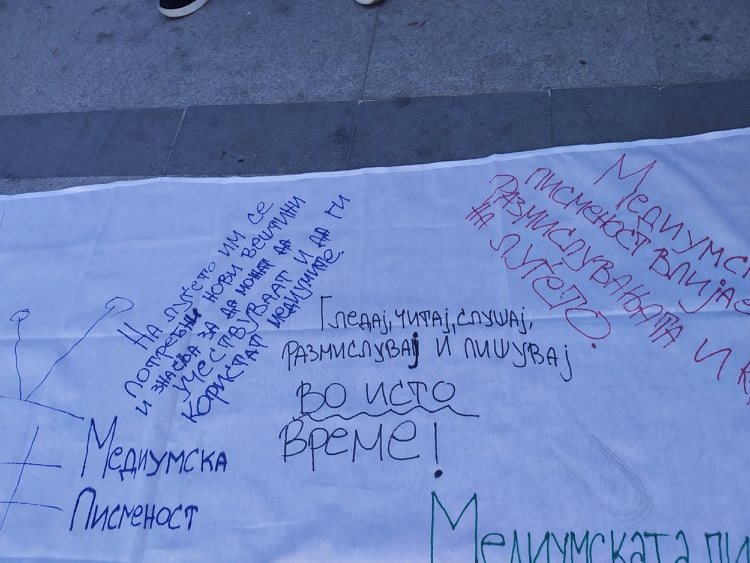 На луѓето им се
потребни нови вештини
и знаења за да можат да
учествуваат и да ги
користат медиумите.
Медиумска
Писменост
Гледај, читај, слушај,
размислувај и пишувај
во исто
време!
Медиумск
писменост влијае
размислувањата и
# луѓето.
Медиумската пи